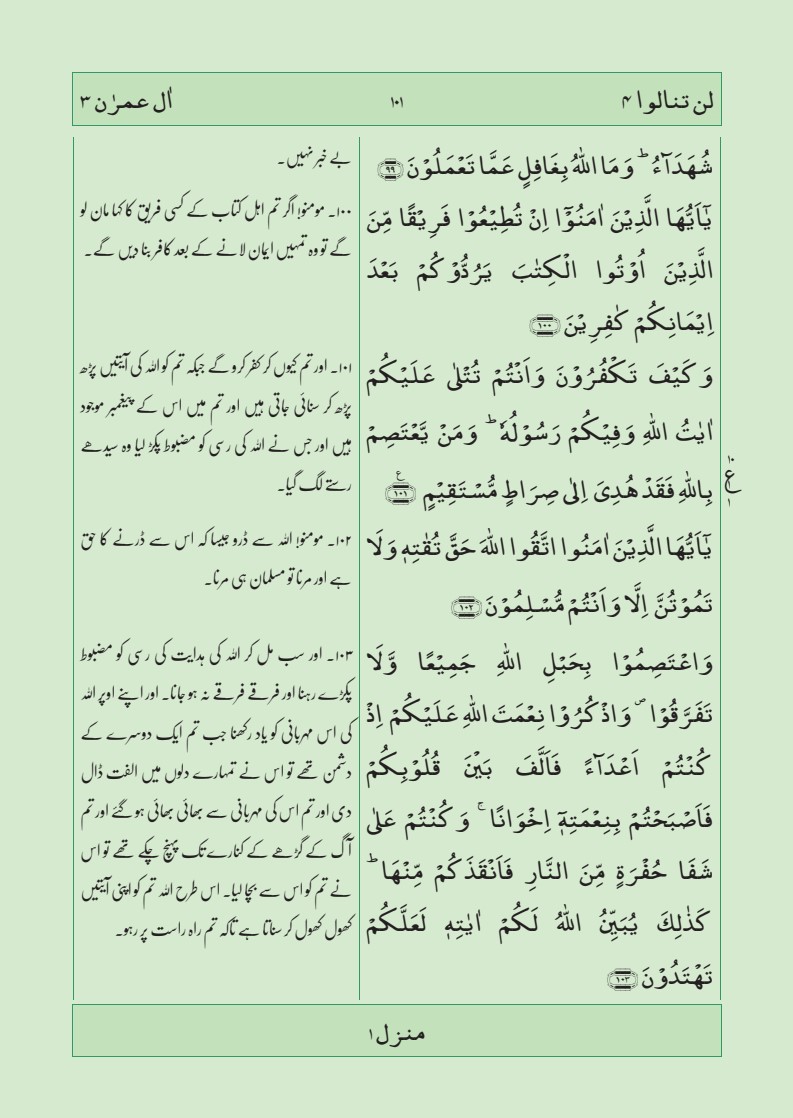 لن تنالوا ۴
۱۰۱
اٰل عمرٰن ۳
شُهَدَآءُ ؕ وَ مَا اللّٰهُ بِغَافِلٍ عَمَّا تَعۡمَلُوۡنَ ﴿۹۹﴾
يٰۤاَيُّهَا الَّذِيۡنَ اٰمَنُوۡۤا اِنۡ تُطِيۡعُوۡا فَرِيۡقًا مِّنَ
الَّذِيۡنَ اُوۡتُوا الۡكِتٰبَ يَرُدُّوۡكُمۡ بَعۡدَ
اِيۡمَانِكُمۡ كٰفِرِيۡنَ ﴿۱۰۰﴾
وَ كَيۡفَ تَكۡفُرُوۡنَ وَاَنۡتُمۡ تُتۡلٰى عَلَيۡكُمۡ
اٰيٰتُ اللّٰهِ وَفِيۡكُمۡ رَسُوۡلُهٗ ؕ وَمَنۡ يَّعۡتَصِمۡ
بِاللّٰهِ فَقَدۡ هُدِىَ اِلٰى صِرَاطٍ مُّسۡتَقِيۡمٍ ﴿۱۰۱﴾ ع
يٰۤاَيُّهَا الَّذِيۡنَ اٰمَنُوا اتَّقُوا اللّٰهَ حَقَّ تُقٰتِهٖ وَلَا
تَمُوۡتُنَّ اِلَّا وَاَنۡتُمۡ مُّسۡلِمُوۡنَ ﴿۱۰۲﴾
وَاعۡتَصِمُوۡا بِحَبۡلِ اللّٰهِ جَمِيۡعًا وَّلَا
تَفَرَّقُوۡا ۖ وَاذۡكُرُوۡا نِعۡمَتَ اللّٰهِ عَلَيۡكُمۡ اِذۡ
كُنۡتُمۡ اَعۡدَآءً فَاَلَّفَ بَيۡنَ قُلُوۡبِكُمۡ
فَاَصۡبَحۡتُمۡ بِنِعۡمَتِهٖۤ اِخۡوَانًا ۚ وَكُنۡتُمۡ عَلٰى
شَفَا حُفۡرَةٍ مِّنَ النَّارِ فَاَنۡقَذَكُمۡ مِّنۡهَا ؕ
كَذٰلِكَ يُبَيِّنُ اللّٰهُ لَكُمۡ اٰيٰتِهٖ لَعَلَّكُمۡ
تَهۡتَدُوۡنَ ﴿۱۰۳﴾
۱۰
ع
۱
بے خبر نہیں۔
۱۰۰۔ مومنو! اگر تم اہل کتاب کے کسی فریق کا کہا مان لو
گے تو وہ تمہیں ایمان لانے کے بعد کافر بنا دیں گے۔
۱۰۱۔ اور تم کیوں کر کفر کرو گے جبکہ تم کو اللہ کی آیتیں پڑھ
پڑھ کر سنائی جاتی ہیں اور تم میں اس کے پیغمبر موجود
ہیں اور جس نے اللہ کی رسی کو مضبوط پکڑ لیا وہ سیدھے
رستے لگ گیا۔
۱۰۲۔ مومنو! اللہ سے ڈرو جیسا کہ اس سے ڈرنے کا حق
ہے اور مرنا تو مسلمان ہی مرنا۔
۱۰۳۔ اور سب مل کر اللہ کی ہدایت کی رسی کو مضبوط
پکڑے رہنا اور فرقے فرقے نہ ہو جانا۔ اور اپنے اوپر اللہ
کی اس مہربانی کو یاد رکھنا جب تم ایک دوسرے کے
دشمن تھے تو اس نے تمہارے دلوں میں الفت ڈال
دی اور تم اس کی مہربانی سے بھائی بھائی ہو گئے اور تم
آگ کے گڑھے کے کنارے تک پہنچ چکے تھے تو اس
نے تم کو اس سے بچا لیا۔ اس طرح اللہ تم کو اپنی آیتیں
کھول کھول کر سناتا ہے تاکہ تم راہ راست پر رہو۔
منزل ۱